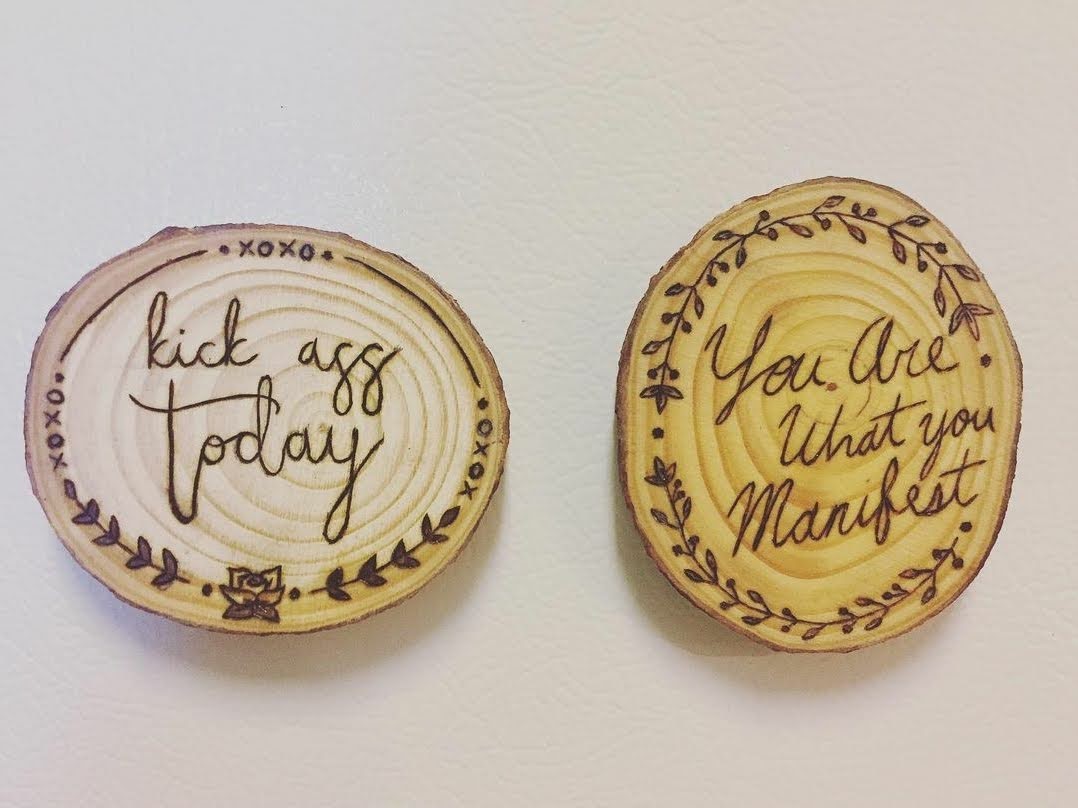 xoxo
kick ass
Today
xoxo
xoxo
You Are
What you
Manifest